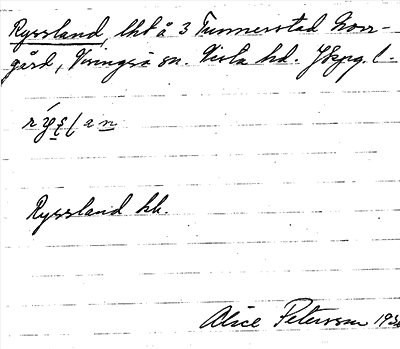 Ryssland, lht å 3 Tunnerstad Norr-
gård, Visingsö sn. Vista hd. Jkpg. l.
Ryssland hk.
Alice Petersson